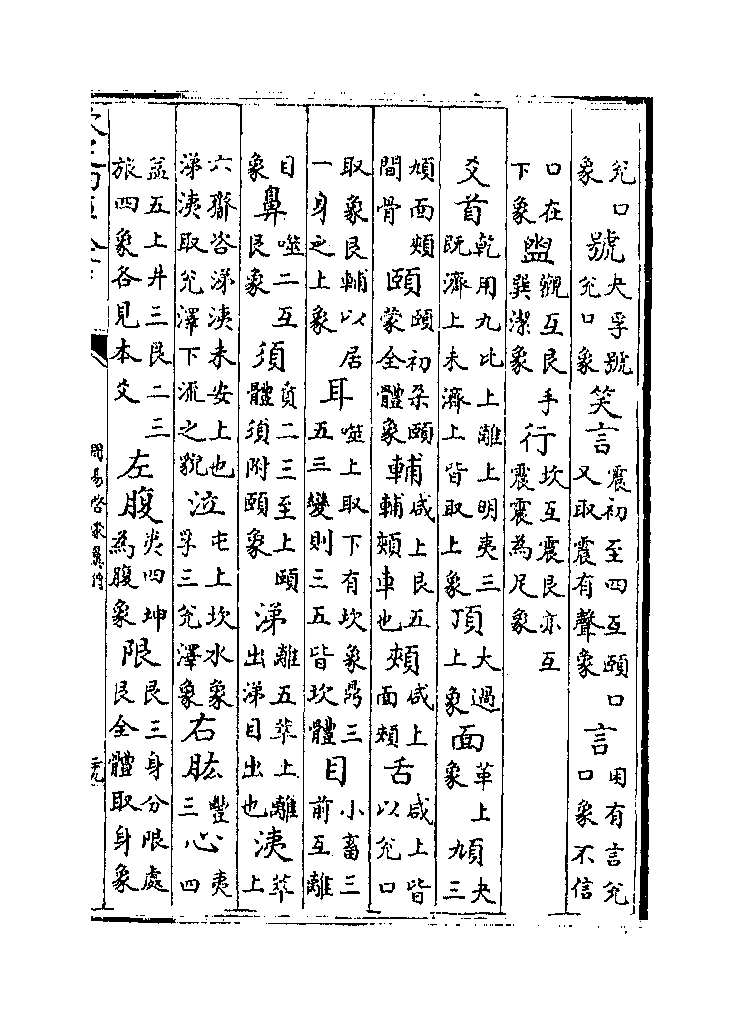 兌口象號夬孚號兌口象笑言震初至四互頤口又取震有聲象言困有言兌口象不信
口在下象盥觀互艮手巽潔象行坎互震艮亦互震震為足象
爻首乾用九比上離上明夷三既濟上未濟上皆取上象頂大過上象面革上象頄夬三
頄面頰間骨頤頤初朶頤蒙全體象輔咸上艮五輔頰車也頰咸上面頰舌咸上皆以兌口
取象艮輔以居一身之上象耳噬上取下有坎象鼎三五三變則三五皆坎體目小畜三前互離
目象鼻噬二互艮象須賁二三至上頤體須附頤象涕離五萃上離出涕目出也洟萃上
六齎咨涕洟未安上也涕洟取兌澤下流之貌泣屯上坎水象孚三兌澤象右肱豐三心夷四
益五上井三艮二三旅四象各見本爻左腹夷四坤為腹象限艮三身分限處艮全體取身象
周易啓蒙翼傳